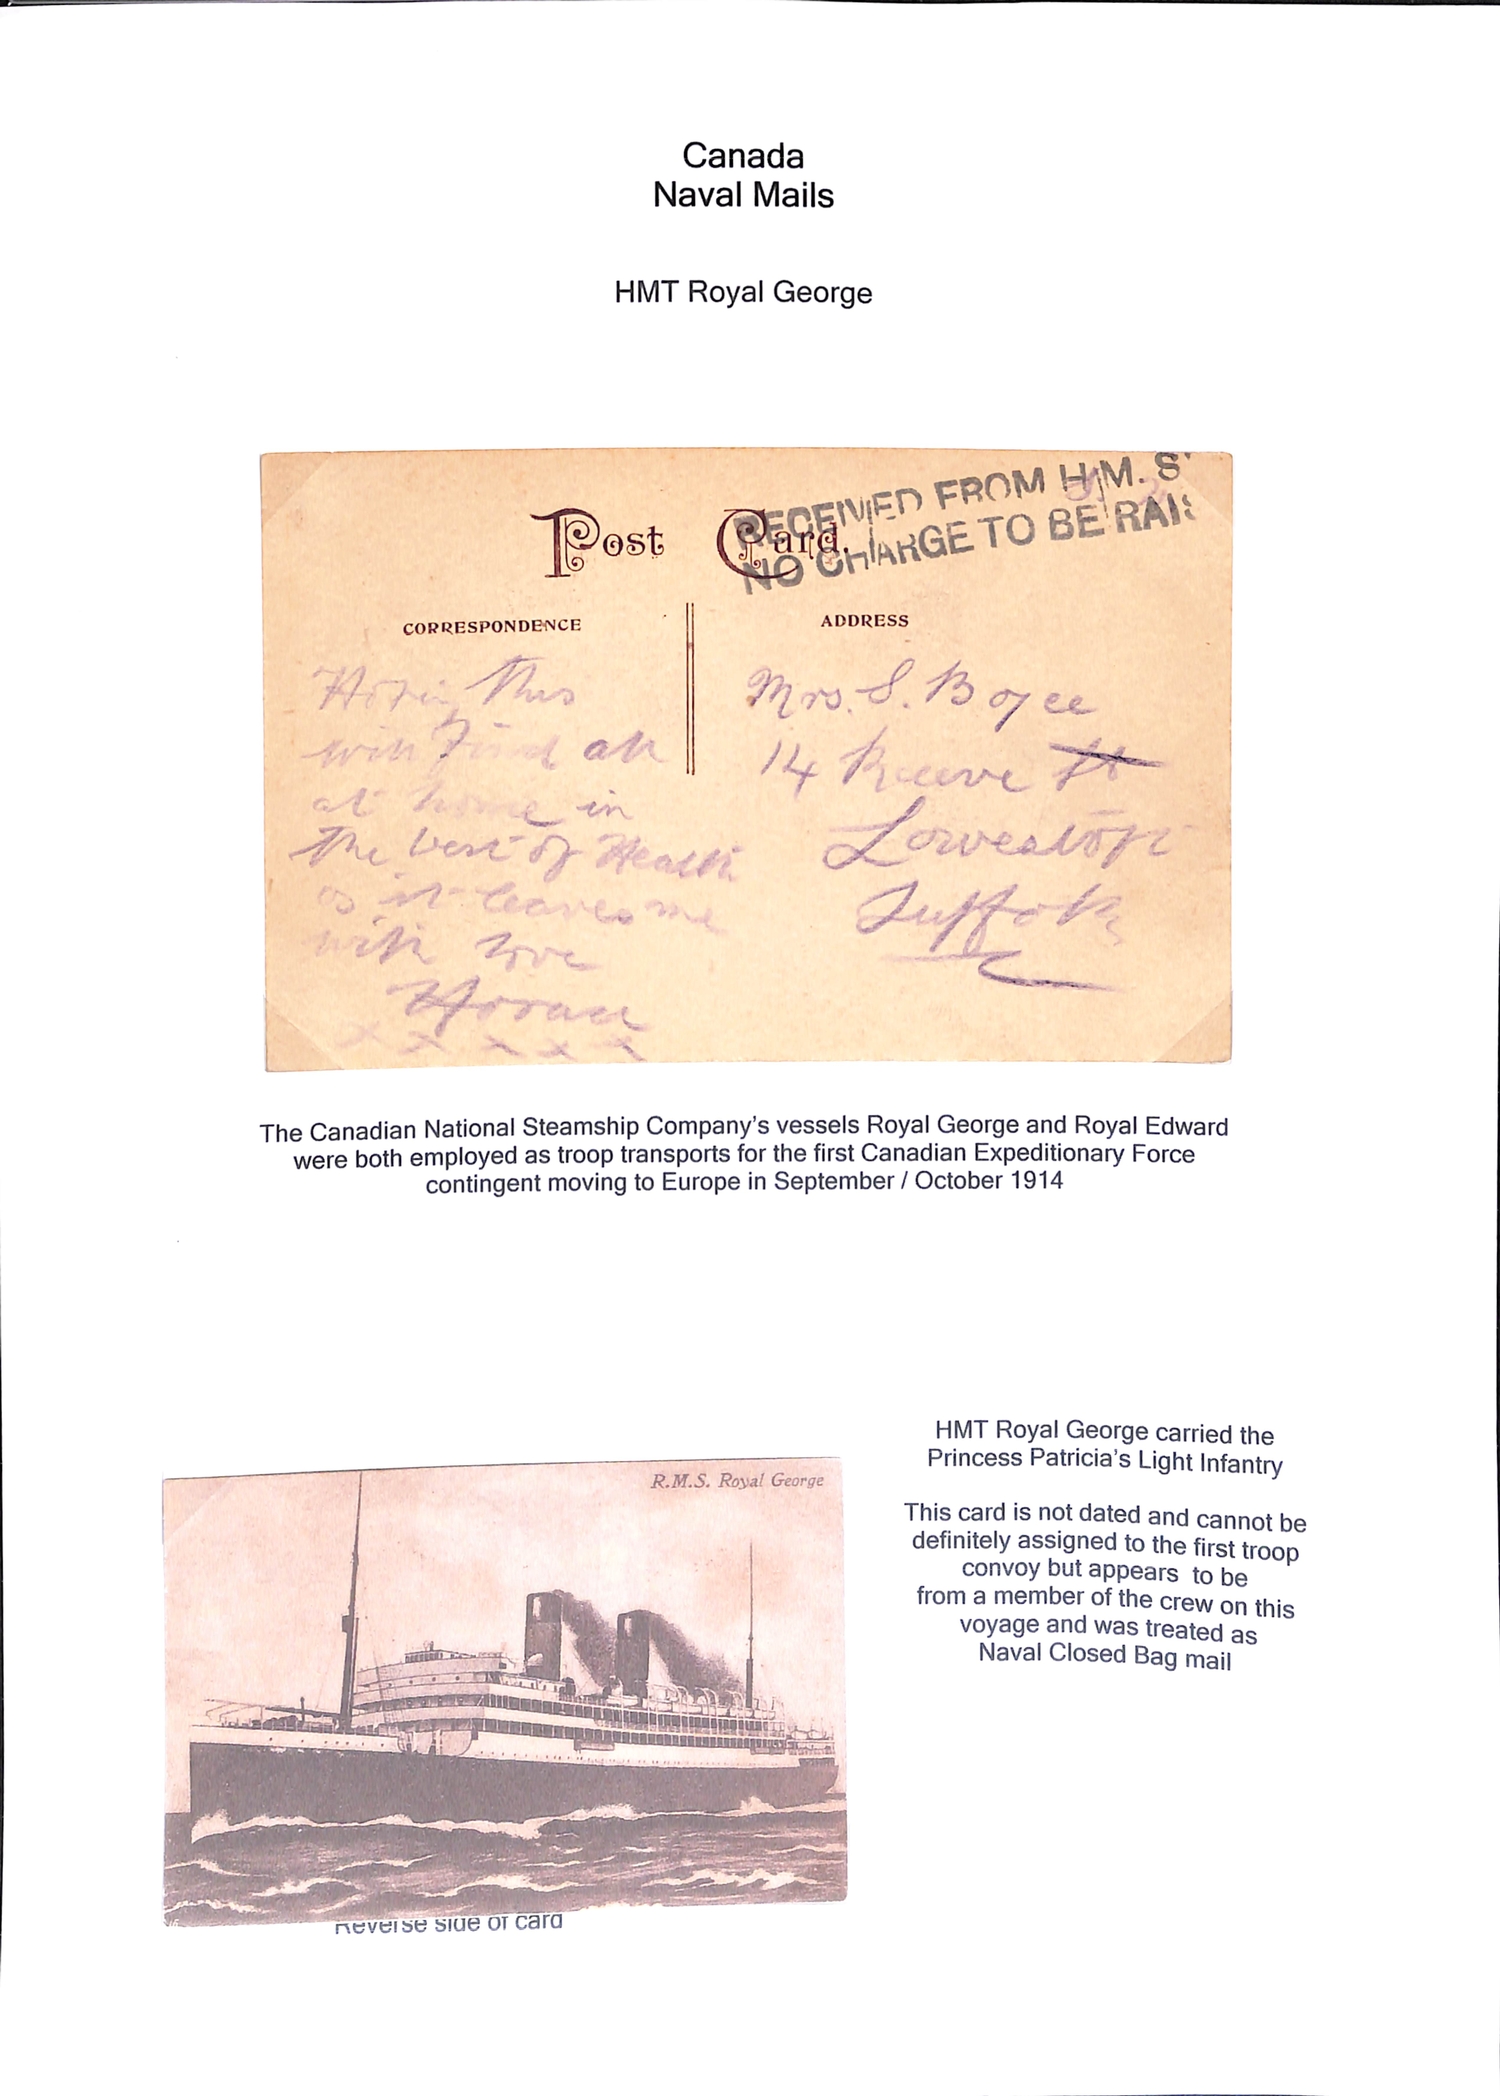 Canada
Naval Mails
HMT Royal George
RECEIVED FROM H.M. S
NO CHARGE TO BE RAI
Post Card.
CORRESPONDENCE
ADDRESS
Hoping this
will find all
at home in
the best of Health
as it leaves me
with love
Horace
x x x x x
Mrs. S. Boyce
14 Reeve St
Lowestoft
Suffolk
The Canadian National Steamship Company's vessels Royal George and Royal Edward
were both employed as troop transports for the first Canadian Expeditionary Force
contingent moving to Europe in September / October 1914
R.M.S. Royal George
Reverse side of card
HMT Royal George carried the
Princess Patricia's Light Infantry
This card is not dated and cannot be
definitely assigned to the first troop
convoy but appears to be
from a member of the crew on this
voyage and was treated as
Naval Closed Bag mail